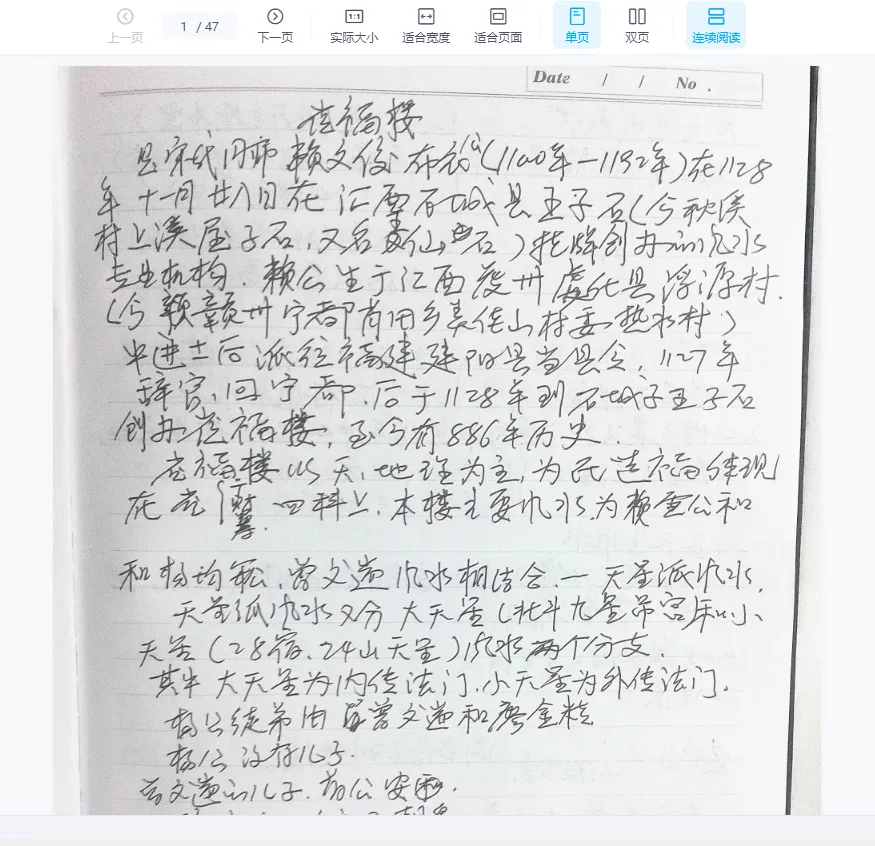 上一页
1 / 47
下一页
1:1
实际大小
适合宽度
适合页面
单页
双页
连续阅读
Date / / No .
福楼
是宋代 赖文俊 布衣(1100年—1192年)在1128
年十一月廿八日在江西石城县王子石(今秋溪
村上溪屋子石,又名 仙 石)挂牌创办的风水
专业机构.赖公生于江西 州虔化县浮源村.
(今 赣州宁都 田乡 村委热水村)
中进士后派往福建建阳县当县令,1127年
辞官,回宁都,后于1128年到石城 王子石
创办 福楼,至今有886年历史.
福楼以天,地理为主,为民造福体现
在 四科上.本楼主要风水为赖 公和
和杨均松,曾文辿风水相结合.一 天星派风水.
天星派风水又分大天星(北斗九星 宫和小
天星(28宿、24山天星)风水两个分支.
其中大天星为内传法门,小天星为外传法门.
杨公徒弟由 曾文辿和廖金精
杨公没有儿子
曾文辿的儿子.